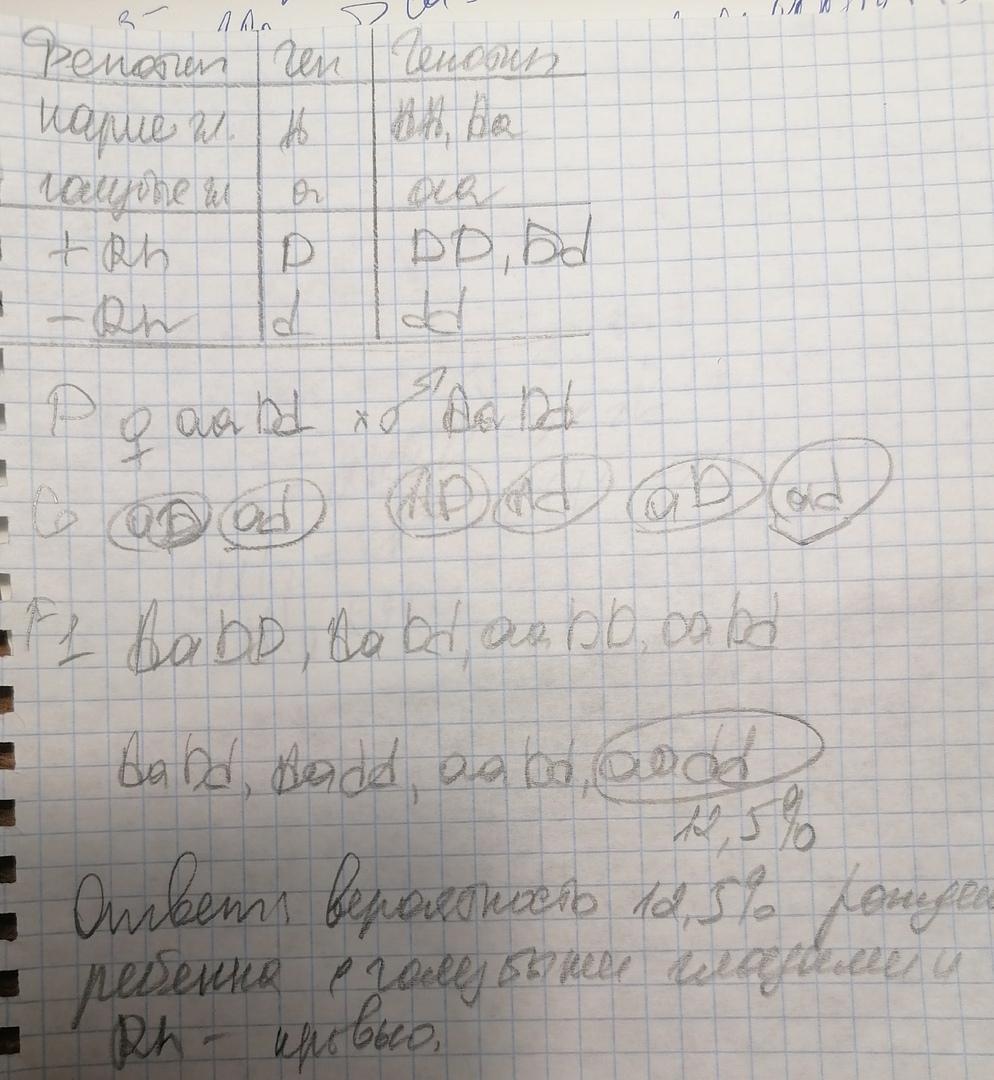 Фенотип Ген Генотип
карие гл. А АА, Аа
голубые гл а аа
+ Rh D DD, Dd
- Rh d dd
P ♀ aaDd × ♂ AaDd
G aD ad AD Ad aD ad
F1 AaDD, AaDd, aaDD, aaDd
AaDd, Aadd, aaDd, aadd
12,5%
Ответ: вероятность 12,5% рожден
ребенка с голубыми глазами и
Rh - кровью.